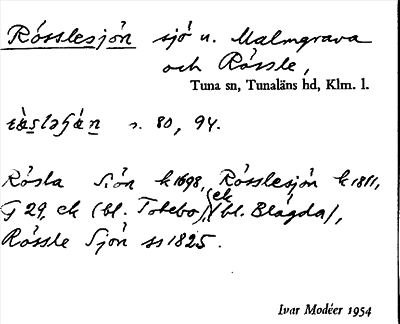 Rösslesjön sjö n. Malmgrava
och Rössle,
Tuna sn, Tunaläns hd, Klm. l.
s. 80, 94.
Rösla Siön k 1698, Rösslesjön k 1811,
G 29, ek (bl. Totebo), ek (bl. Blågda),
Rössle Sjön ss 1825.
Ivar Modéer 1954